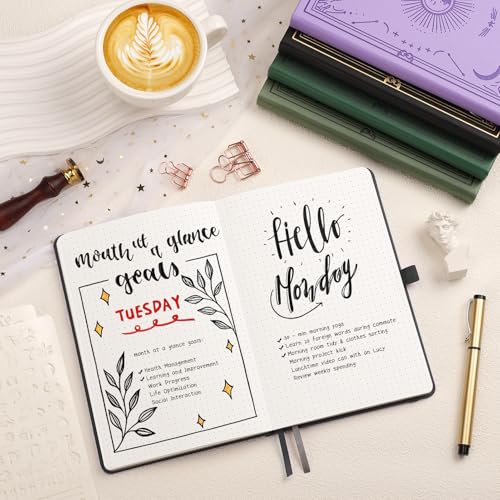 mouth at a glance
goals
TUESDAY
month at a glance goals:
✓ Heath Management
✓ Learning and Improvement
Work Progress
Life Optimization
Social Interaction
Hello
Monday
✓ 30 - min morning yoga
✓ Learn 20 foreign words during commute
✓ Morning room tidy & clothes sorting
✓ Morning project kick
Lunchtime video can with on Lucy
Review weekly spending